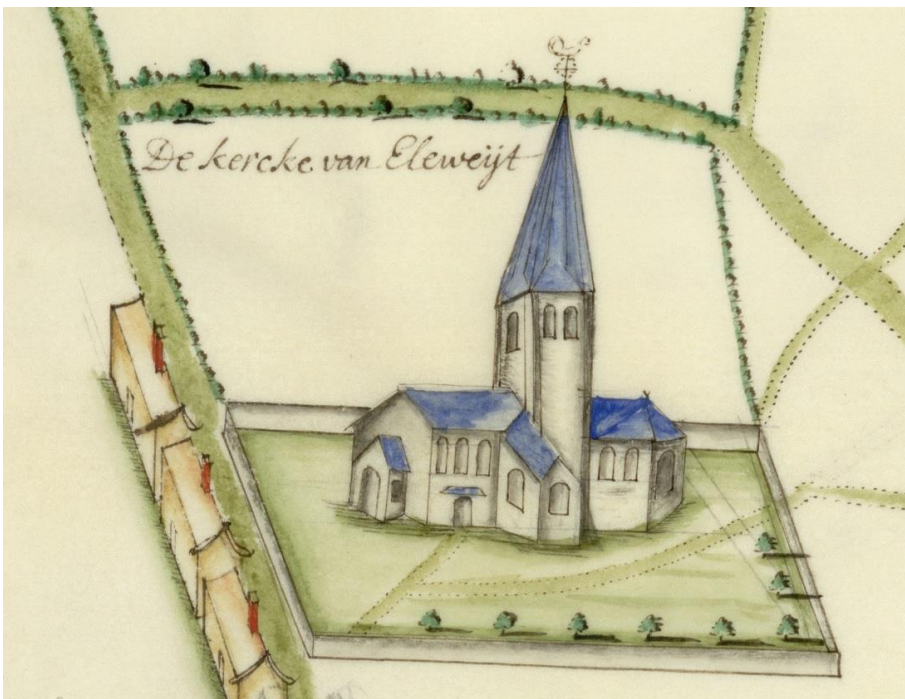 De kercke van Eleweijt